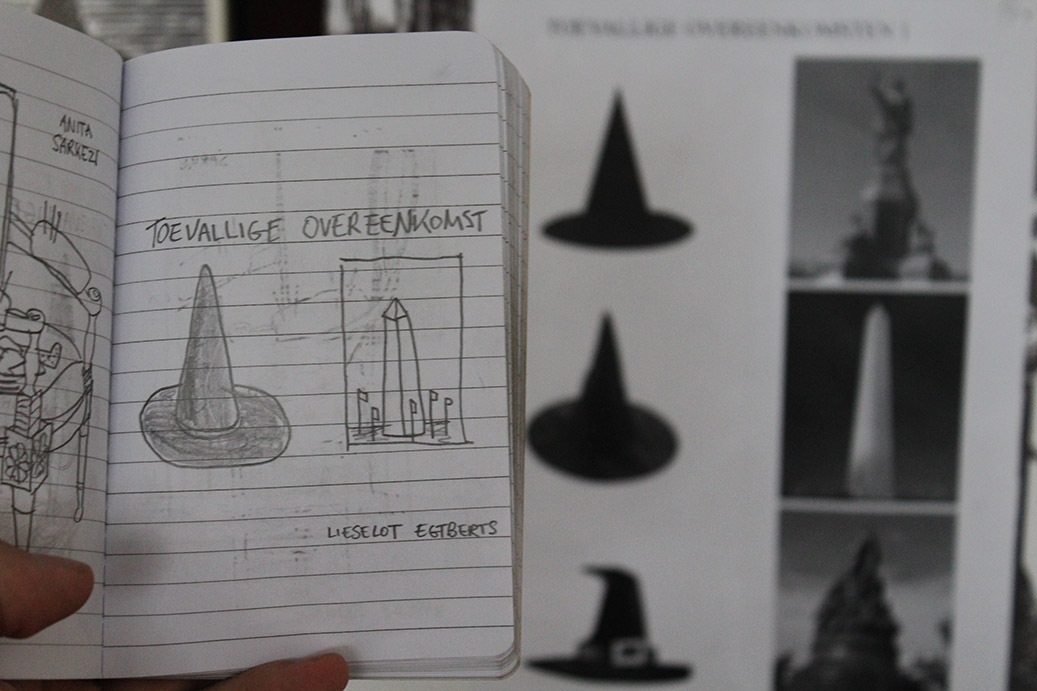 ANITA
SARKEZI
TOEVALLIGE OVEREENKOMST
LIESELOT EGTBERTS
TOEVALLIGE OVEREENKOMSTEN